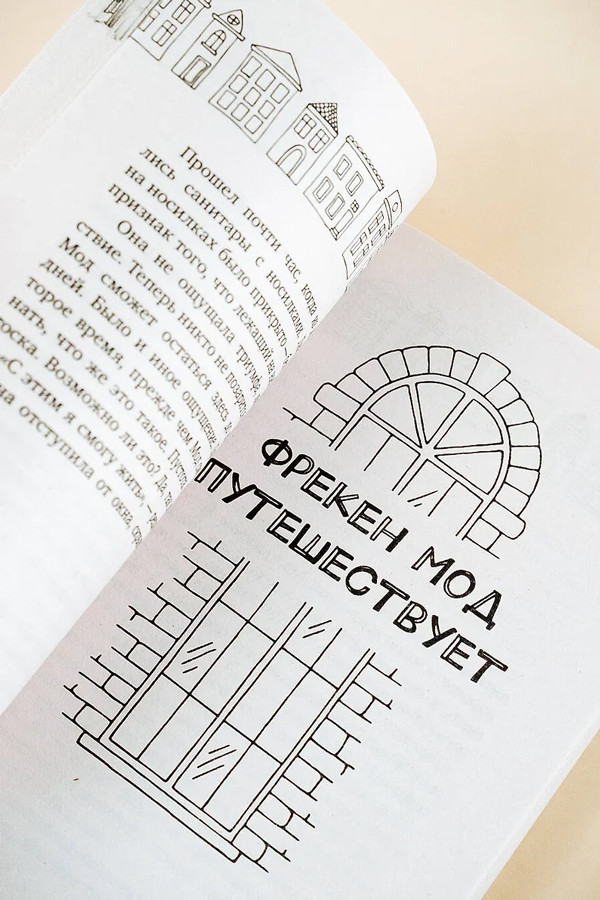 Прошел почти час, когда
лись санитары с носилками.
на носилках было прикрыто
признак того, что лежащий на
Она не ощущала триумфа
ствие. Теперь никто не
Мод сможет остаться здесь
дней. Было и иное ощущение
торое время, прежде чем
нать, что же это такое.
тоска. Возможно ли это? Да,
«С этим я смогу жить» –
на отступила от окна,
ФРЕКЕН МОД
ПУТЕШЕСТВУЕТ